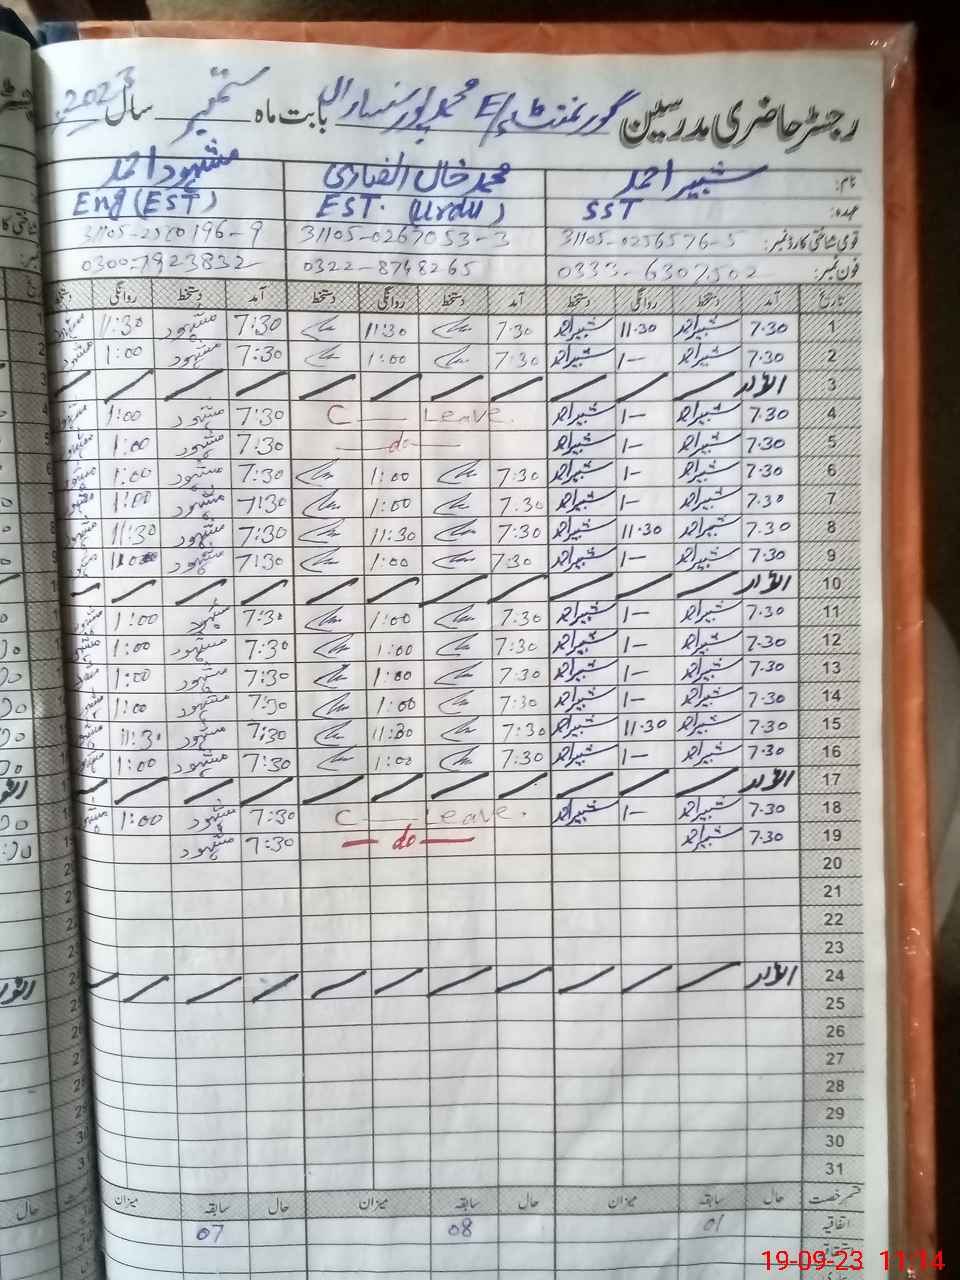 رجسٹر حاضری مدرسین گورنمنٹ E/S محمد پور سنساراں بابت ماہ ستمبر سال 2023
نام: شبیر احمد محمد خال انصاری مشہود احمد
عہدہ: SST EST. (Urdu) Eng (EST)
قومی شناختی کارڈ نمبر: 31105-0256576-5 31105-0267053-3 31105-2580196-9
فون نمبر: 0333-6307502 0322-8748265 0300-7923832
تاریخ آمد دستخط روانگی دستخط آمد دستخط روانگی دستخط آمد دستخط روانگی دستخط
1 7.30 شبیر احمد 11.30 شبیر احمد 7.30 11:30 7:30 مشہود 11:30
2 7.30 شبیر احمد 1— شبیر احمد 7:30 1:00 7:30 مشہود 1:00
3 اتوار
4 7.30 شبیر احمد 1— شبیر احمد C Leave. 7:30 مشہود 1:00
5 7.30 شبیر احمد 1— شبیر احمد —do— 7:30 مشہود 1:00
6 7.30 شبیر احمد 1— شبیر احمد 7:30 1:00 7:30 مشہود 1:00
7 7.30 شبیر احمد 1— شبیر احمد 7.30 1:00 7:30 مشہود 1:00
8 7.30 شبیر احمد 11.30 شبیر احمد 7:30 11:30 7:30 مشہود 11:30
9 7.30 شبیر احمد 1— شبیر احمد 7:30 1:00 7:30 مشہود
10 اتوار
11 7.30 شبیر احمد 1— شبیر احمد 7:30 1:00 7:30 مشہود 1:00
12 7.30 شبیر احمد 1— شبیر احمد 7:30 1:00 7:30 مشہود 1:00
13 7.30 شبیر احمد 1— شبیر احمد 7:30 1:00 7:30 مشہود 1:00
14 7.30 شبیر احمد 1— شبیر احمد 7:30 1:00 7:30 مشہود 1:00
15 7.30 شبیر احمد 11.30 شبیر احمد 7:30 11:30 7:30 مشہود 11:30
16 7.30 شبیر احمد 1— شبیر احمد 7:30 1:00 7:30 مشہود 1:00
17 اتوار
18 7.30 شبیر احمد 1— شبیر احمد C Leave. 7:30 مشہود 1:00
19 7.30 شبیر احمد — do — 7:30 مشہود
20
21
22
23
24 اتوار
25
26
27
28
29
30
31
قسم رخصت حال سابقہ میزان حال سابقہ میزان حال سابقہ میزان
اتفاقیہ 01 08 07
19-09-23 11:14